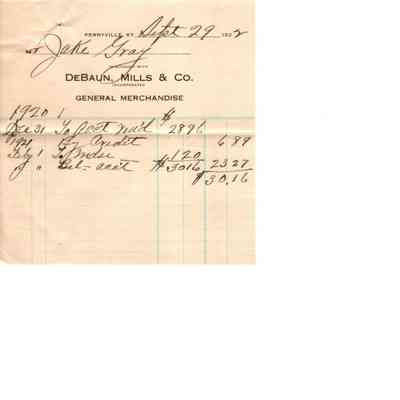 PERRYVILLE, KY. Sept 29 1922
M Jake Gray
WITH
DEBAUN, MILLS & CO.
INCORPORATED
GENERAL MERCHANDISE
1920 $
Dec 31 To Acct 28 96
1921 By Credit 6 89
Feby 1 To Mdse 1 20
" " Bal - acct $30 16 23 27
$30.16